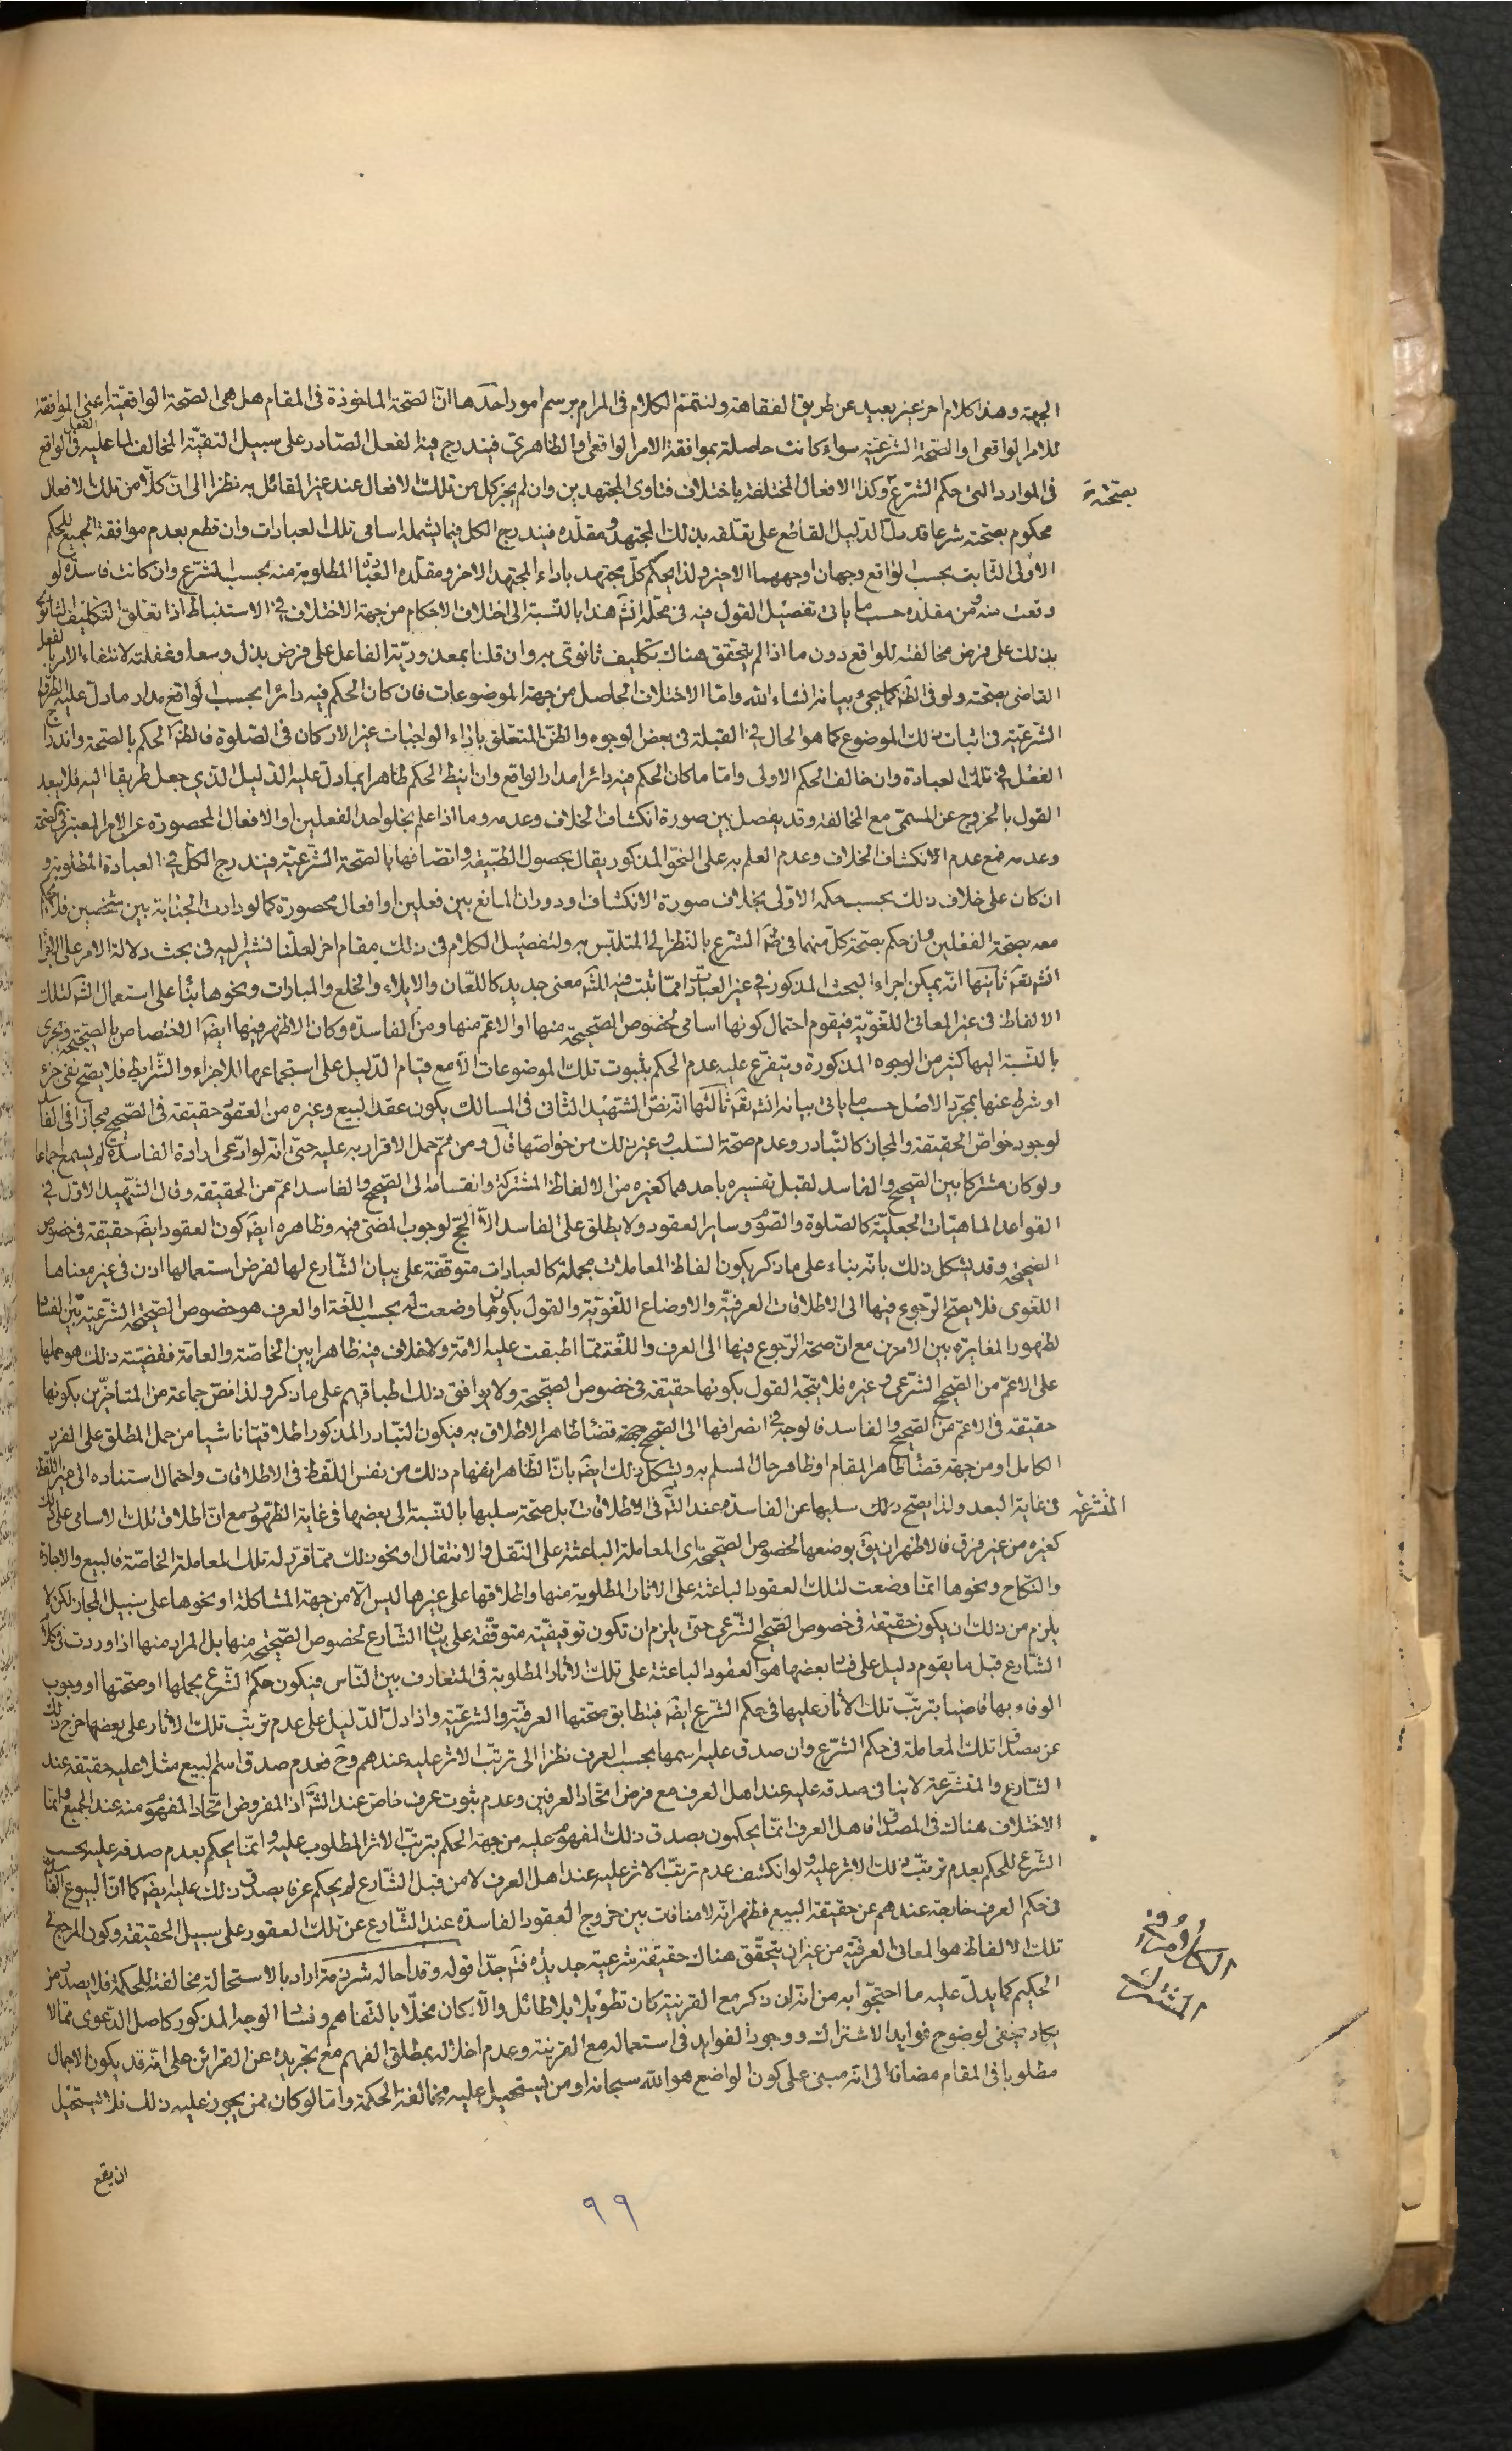 الجهة وهذا كلام اخر غير بعيد عن طريق الفقاهة ولنتمم الكلام في المرام برسم امور احدها ان الصحة الماخوذة في المقام هل هى الصحة الواقعية اعنى الموافقة
للامر الواقعى او الصحة الشرعية سواء كانت حاصلة بموافقة الامر الواقعى او الظاهرى فيندرج فيه الفعل الصادر على سبيل التقية المخالف لما عليه الفعل فى الواقع
فى الموارد التى حكم الشرع بصحته وكذا الافعال المختلفة باختلاف فتاوى المجتهدين وان لم يجز كل من تلك الافعال عند غير القائل به نظرا الى ان كلا من تلك الافعال
محكوم بصحته شرعا قد دل الدليل القاطع على تعلقه بذلك المجتهد ومقلده فيندرج الكل فيما يشمله اسامى تلك العبادات وان قطع بعدم موافقة الجميع للحكم
الاولى الثابت بحسب الواقع وجهان اوجههما الاخير ولذا يحكم كل مجتهد باداء المجتهد الاخر ومقلده العبادة المطلوبة منه بحسب الشرع وان كانت فاسدة لو
وقعت منه ومن مقلده حسب ما ياتى تفصيل القول فيه فى محله انش هذا بالنسبة الى اختلاف الاحكام من جهة الاختلاف فى الاستنباط اذا تعلق التكليف الثانوى
بذلك على فرض مخالفته للواقع دون ما اذا لم يتحقق هناك تكليف ثانوى به وان قلنا بمعذورية الفاعل على فرض بذل وسعه وغفلته لانتفاء الامر بالفعل
القاضى بصحته ولو فى الظ كما يجىء بيانه انشاء الله واما الاختلاف الحاصل من جهة الموضوعات فان كان الحكم فيه دائرا بحسب الواقع مدار ما دل عليه الطرق
الشرعية فى اثبات ذلك الموضوع كما هو الحال فى القبلة فى بعض الوجوه والظن المتعلق باداء الواجبات غير الاركان فى الصلوة فالظ الحكم بالصحة واندراج
الفعل فى تلك العبادة وان خالف الحكم الاولى واما ما كان الحكم فيه دائرا مدار الواقع وان انيط الحكم ظاهرا بما دل عليه الدليل الذى جعل طريقا اليه فلا يبعد
القول بالخروج عن المسمى مع المخالفة وقد يفصل بين صورة انكشاف الخلاف وعدمه وما اذا علم بخلو احد الفعلين او الافعال المحصورة عن الامر المعتبر فى الصحة
وعدمه فمع عدم الانكشاف الخلاف وعدم العلم به على النحو المذكور يقال بحصول الطبيعة واتصافها بالصحة الشرعية فيندرج الكل فى العبادة المطلوبة و
ان كان على خلاف ذلك بحسب حكمه الاولى بخلاف صورة الانكشاف او دوران المانع بين فعلين او افعال محصورة كما لو دارت الجنابة بين شخصين فلا يحكم
معه بصحة الفعلين وان حكم بصحة كل منهما فى ظ الشرع بالنظر الى المتلبس به ولتفصيل الكلام فى ذلك مقام اخر لعلنا نشير اليه فى بحث دلالة الامر على الاجزاء
انش تع ثانيها انه يمكن اجراء البحث المذكور فى غير العبادات مما ثبت فيه للش معنى جديد كاللعان والايلاء والخلع والمبارات ونحوها بناء على استعمال الش لتلك
الالفاظ فى غير المعانى اللغوية فيقوم احتمال كونها اسامى لخصوص الصحيحة منها او الاعم منها ومن الفاسدة وكان الاظهر فيها ايض الاختصاص بالصحيحة ويجرى
بالنسبة اليها كثير من الوجوه المذكورة ويتفرع عليه عدم الحكم بثبوت تلك الموضوعات الا مع قيام الدليل على استجماعها للاجزاء والشرايط فلا يصح نفى جزء
او شرط عنها بمجرد الاصل حسب ما ياتى بيانه انش تع ثالثها انه نص الشهيد الثانى فى المسالك بكون عقد البيع وغيره من العقود حقيقة فى الصحيح مجازا فى الفاسد
لوجود خواص الحقيقة والمجاز كالتبادر وعدم صحة السلب وغير ذلك من خواصها قال ومن ثم حمل الاقرار به عليه حتى انه لو ادعى ارادة الفاسدة لم يسمع اجماعا
ولو كان مشتركا بين الصحيح والفاسد لقبل تفسيره باحدهما كغيره من الالفاظ المشتركة وانقسامه الى الصحيح والفاسد اعم من الحقيقة وقال الشهيد الاول فى
القواعد الماهيات الجعلية كالصلوة والصوم وساير العقود ولا يطلق على الفاسد الا الحج لوجوب المضى فيه وظاهره ايض كون العقود ايض حقيقة فى خصوص
الصحيحة وقد يشكل ذلك بانه بناء على ما ذكر يكون الفاظ المعاملات مجملة كالعبادات متوقفة على بيان الشارع لها لفرض استعمالها اذن فى غير معناها
اللغوى فلا يصح الرجوع فيها الى الاطلاقات العرفية والاوضاع اللغوية والقول بكون ما وضعت له بحسب اللغة او العرف هو خصوص الصحيحة الشرعية بين الفساد
لظهور المغايرة بين الامرين مع ان صحة الرجوع فيها الى العرف واللغة مما اطبقت عليه الامة ولا خلاف فيه ظاهرا بين الخاصة والعامة فقضيته ذلك هو حملها
على الاعم من الصحيح الشرعى وغيره فلا يتجه القول بكونها حقيقة فى خصوص الصحيحة ولا يوافق ذلك اطباقهم على ما ذكر ولذا نص جماعة من المتاخرين بكونها
حقيقة فى الاعم من الصحيح والفاسد فالوجه فى انصرافها الى الصحيح جهة قضاء ظاهر الاطلاق به فيكون التبادر المذكور اطلاقيا ناشيا من حمل المطلق على الفرد
الكامل او من جهة قضاء ظاهر المقام او ظاهر حال المسلم به ويشكل ذلك ايض بان الظاهر انفهام ذلك من نفس اللفظ فى الاطلاقات واحتمال استناده الى غير اللفظ
فى غاية البعد ولذا يصح سلبها عن الفاسدة عند المتشرعة فى الاطلاقات بل صحة سلبها بالنسبة الى بعضها فى غاية الظهور مع ان اطلاق تلك الاسامى على ذلك
كغيره من غير فرق فالاظهر ان يق بوضعها لخصوص الصحيحة اى المعاملة الباعثة على النقل والانتقال او نحو ذلك مما قرر له تلك المعاملة الخاصة فالبيع والاجارة
والنكاح ونحوها انما وضعت لتلك العقود الباعثة على الاثار المطلوبة منها واطلاقها على غيرها ليس الا من جهة المشاكلة او نحوها على سبيل المجاز لكن لا
يلزم من ذلك ان يكون حقيقة فى خصوص الصحيح الشرعى حتى يلزم ان تكون توقيفية متوقفة على بيان الشارع لخصوص الصحيحة منها بل المراد منها اذا وردت فى كلام
الشارع قبل ما يقوم دليل على فساد بعضها هو العقود الباعثة على تلك الاثار المطلوبة فى المتعارف بين الناس فيكون حكم الشرع بحملها او صحتها او وجوب
الوفاء بها قاضيا بترتب تلك الاثار عليها فى حكم الشرع ايض فيتطابق صحتها العرفية والشرعية واذا دل الدليل على عدم ترتب تلك الاثار على بعضها خرج ذلك
عن مصداق تلك المعاملة فى حكم الشرع وان صدق عليه اسمها بحسب العرف نظرا الى ترتب الاثر عليه عندهم وح فعدم صدق اسم البيع مثلا عليه حقيقة عند
الشارع والمتشرعة لا ينافى صدقه عليه عند اهل العرف مع فرض اتحاد العرفين وعدم ثبوت عرف خاص عند الش اذ المفروض اتحاد المفهوم منه عند الجميع وانما
الاختلاف هناك فى المصداق فاهل العرف انما يحكمون بصدق ذلك المفهوم عليه من جهة الحكم بترتب الاثر المطلوب عليه وانما يحكم بعدم صدقه عليه بحسب
الشرع للحكم بعدم ترتب ذلك الاثر عليه ولو انكشف عدم ترتب الاثر عليه عند اهل العرف لا من قبل الشارع لم يحكم عرفا بصدق ذلك عليه ايض كما ان البيوع الفاسدة
فى حكم العرف خارجة عندهم عن حقيقة البيع فظهر انه لا منافات بين خروج العقود الفاسدة عند الشارع عن تلك العقود على سبيل الحقيقة وكون المرجع فى
تلك الالفاظ هو المعانى العرفية من غير ان يتحقق هناك حقيقة شرعية جديدة فت جدا قوله وقد احاله شرذمة اراد بالاستحالة مخالفته للحكمة فلا يصدر من
الحكيم كما يدل عليه ما احتجوا به من انه ان ذكر مع القرينة كان تطويلا بلا طائل والا كان مخلا بالتفاهم وفساد الوجه المذكور كاصل الدعوى مما لا
يكاد يخفى لوضوح فوايد الاشتراك ووجود الفوايد فى استعماله مع القرينة وعدم اخلاله بمطلق الفهم مع تجريده عن القرائن على انه قد يكون الاجمال
مطلوبا فى المقام مضافا الى انه مبنى على كون الواضع هو الله سبحانه او من يستحيل عليه مخالفة الحكمة واما لو كان ممن يجوز عليه ذلك فلا يستحيل
ان يقع
٩٩
بصحته
المتشرعة
الكلام فى
المشترك